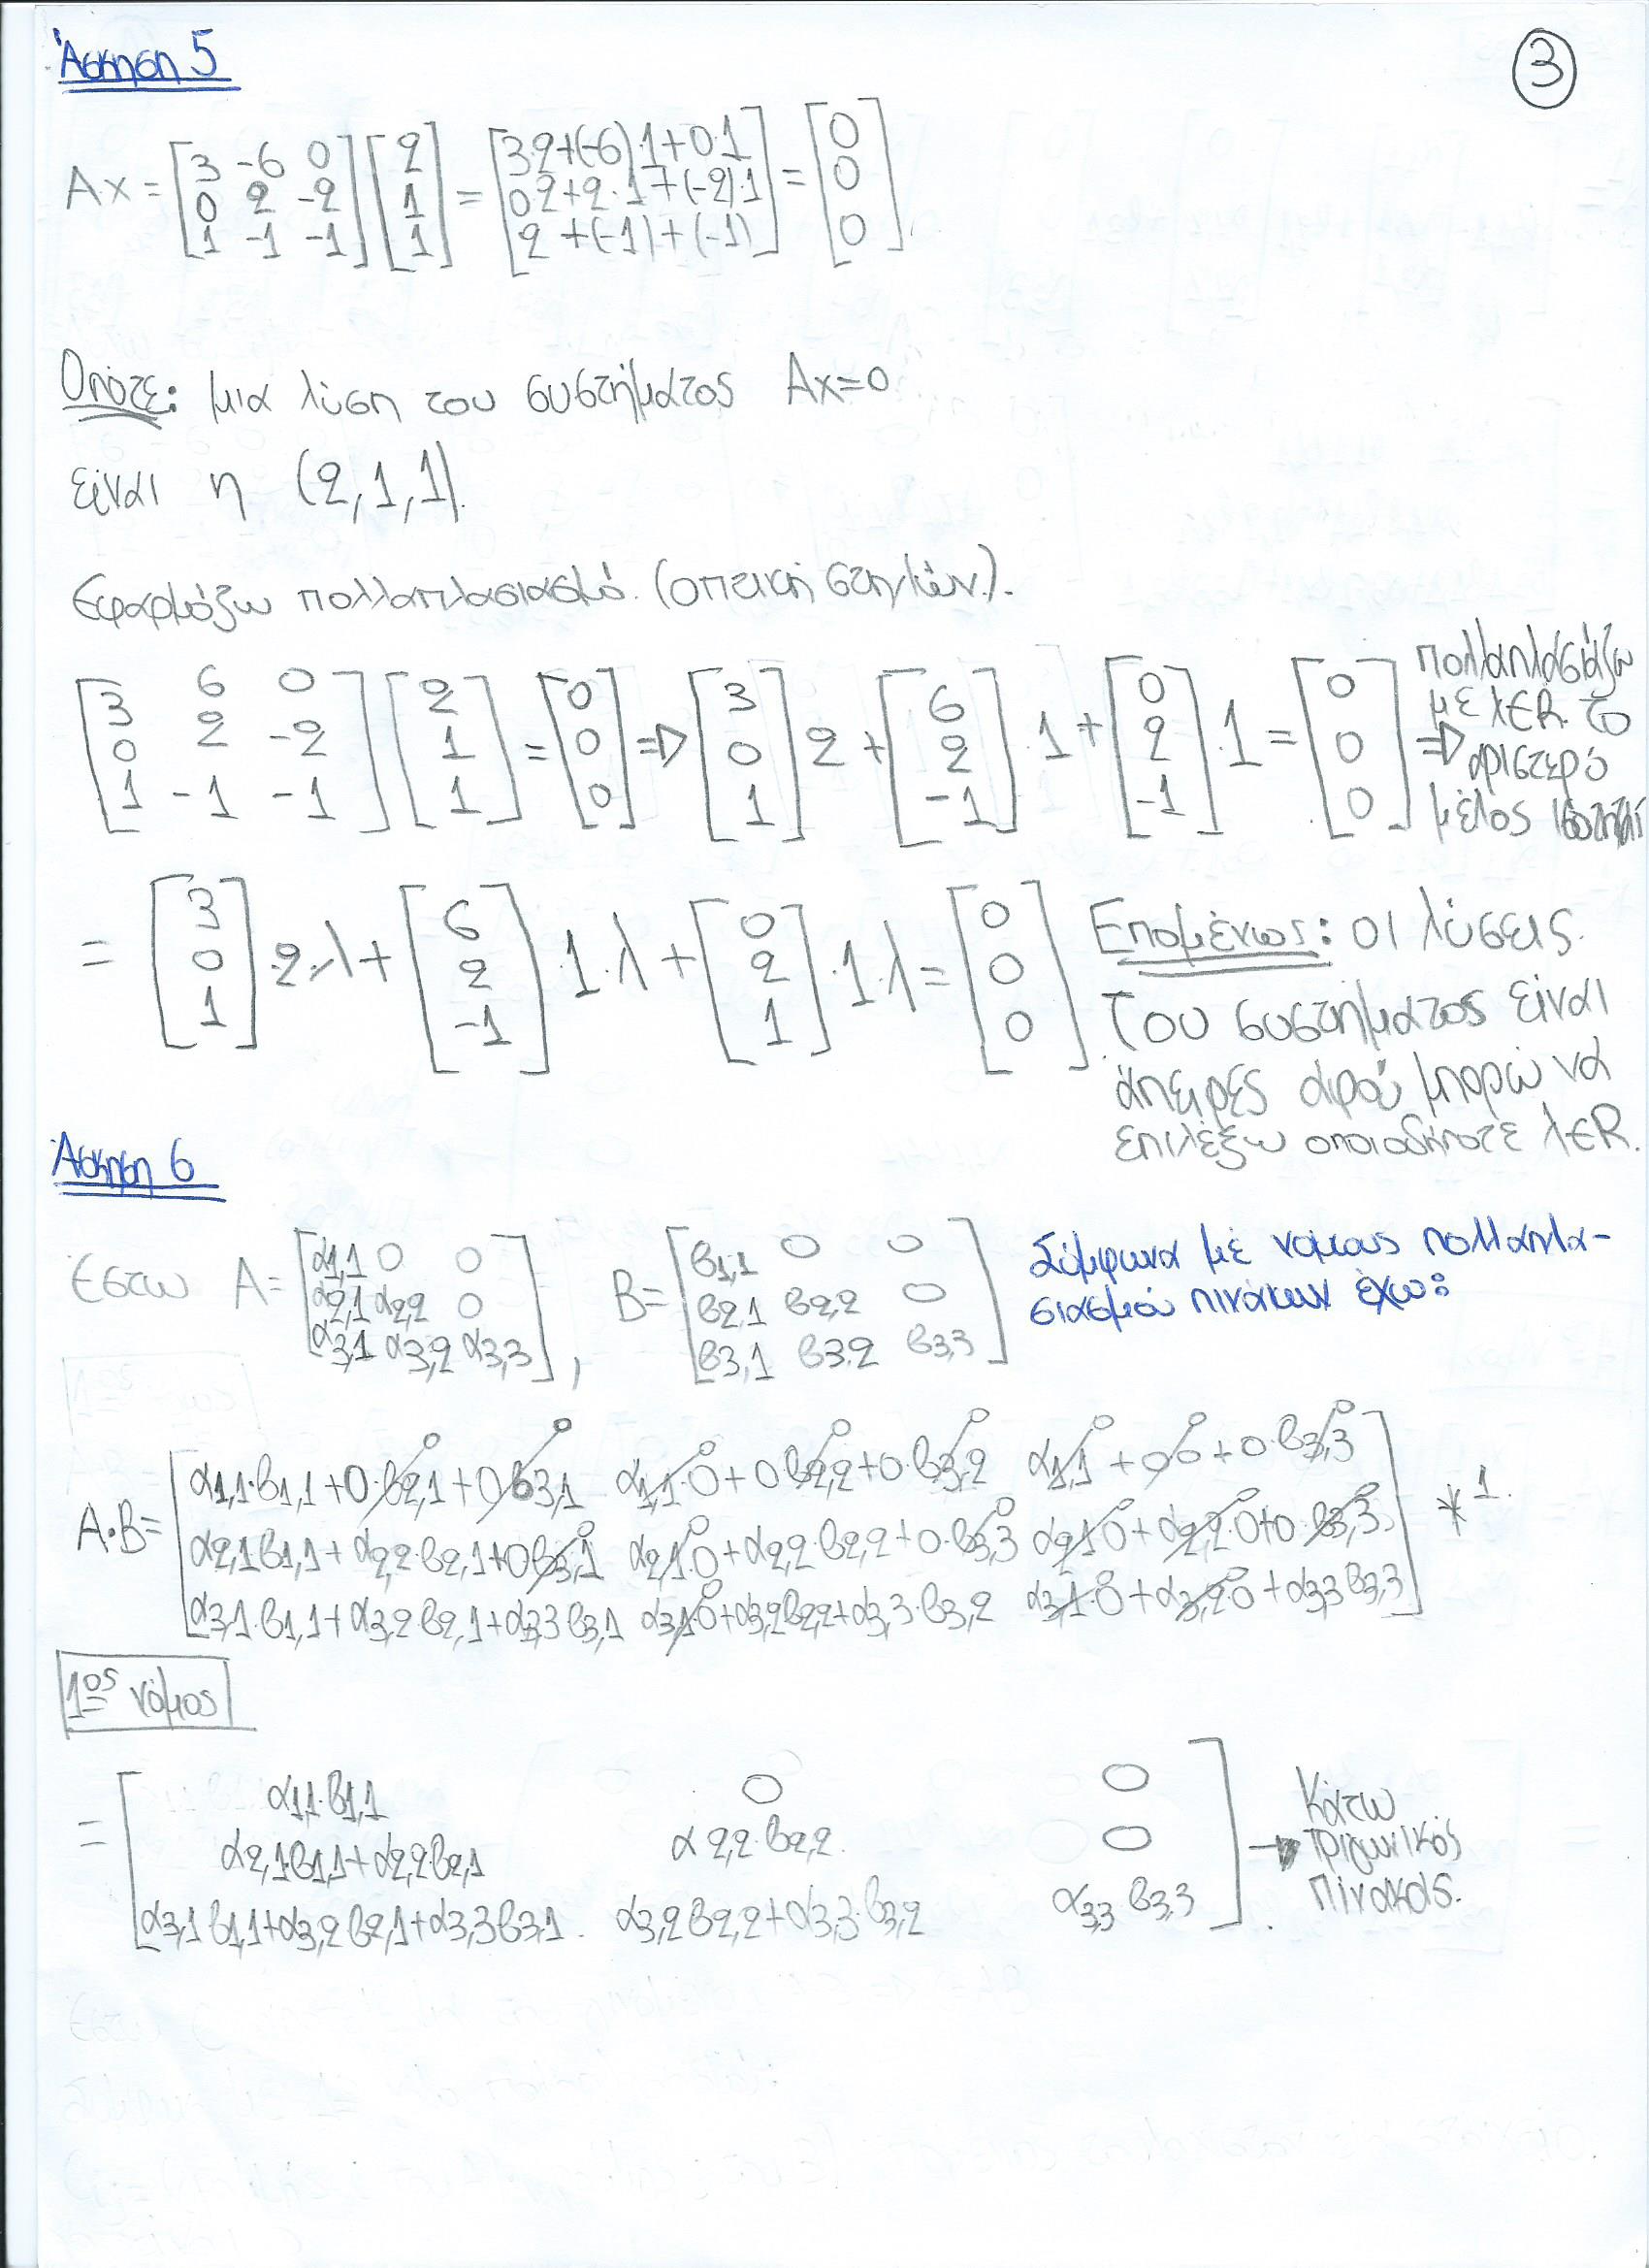 Άσκηση 5
3
Ax = [3 -6 0; 0 2 -2; 1 -1 -1] [2; 1; 1] = [3·2+(-6)·1+0·1; 0·2+2·1+(-2)·1; 2+(-1)+(-1)] = [0; 0; 0]
Οπότε: μια λύση του συστήματος Ax=0
είναι η (2,1,1).
Εφαρμόζω πολλαπλασιασμό. (οπτική στηλών.).
[3 6 0; 0 2 -2; 1 -1 -1] [2; 1; 1] = [0; 0; 0] => [3; 0; 1] 2 + [6; 2; -1] ·1 + [0; 2; -1] ·1 = [0; 0; 0] => πολλαπλασιάζω με λ∈R το αριστερό μέλος
= [3; 0; 1] ·2·λ + [6; 2; -1] ·1·λ + [0; 2; 1] ·1·λ = [0; 0; 0]
Επομένως: οι λύσεις
του συστήματος είναι
άπειρες αφού μπορώ να
επιλέξω οποιοδήποτε λ∈R.
Άσκηση 6
Έστω A = [α1,1 0 0; α2,1 α2,2 0; α3,1 α3,2 α3,3], B = [β1,1 0 0; β2,1 β2,2 0; β3,1 β3,2 β3,3]
Σύμφωνα με νόμους πολλαπλα-
σιασμού πινάκων έχω:
A·B = [α1,1·β1,1+0·β2,1+0·β3,1 α1,1·0+0·β2,2+0·β3,2 α1,1+0·0+0·β3,3;
α2,1β1,1+α2,2·β2,1+0β3,1 α2,1·0+α2,2·β2,2+0·β3,3 α2,1·0+α2,2·0+0·β3,3;
α3,1·β1,1+α3,2·β2,1+α3,3β3,1 α3,1·0+α3,2β2,2+α3,3·β3,2 α3,1·0+α3,2·0+α3,3β3,3] *1.
1ος νόμος
= [α1,1·β1,1 0 0;
α2,1·β1,1+α2,2·β2,1 α2,2·β2,2. 0;
α3,1β1,1+α3,2β2,1+α3,3β3,1. α3,2β2,2+α3,3·β3,2 α3,3β3,3]. → Κάτω
τριγωνικός
πίνακας.